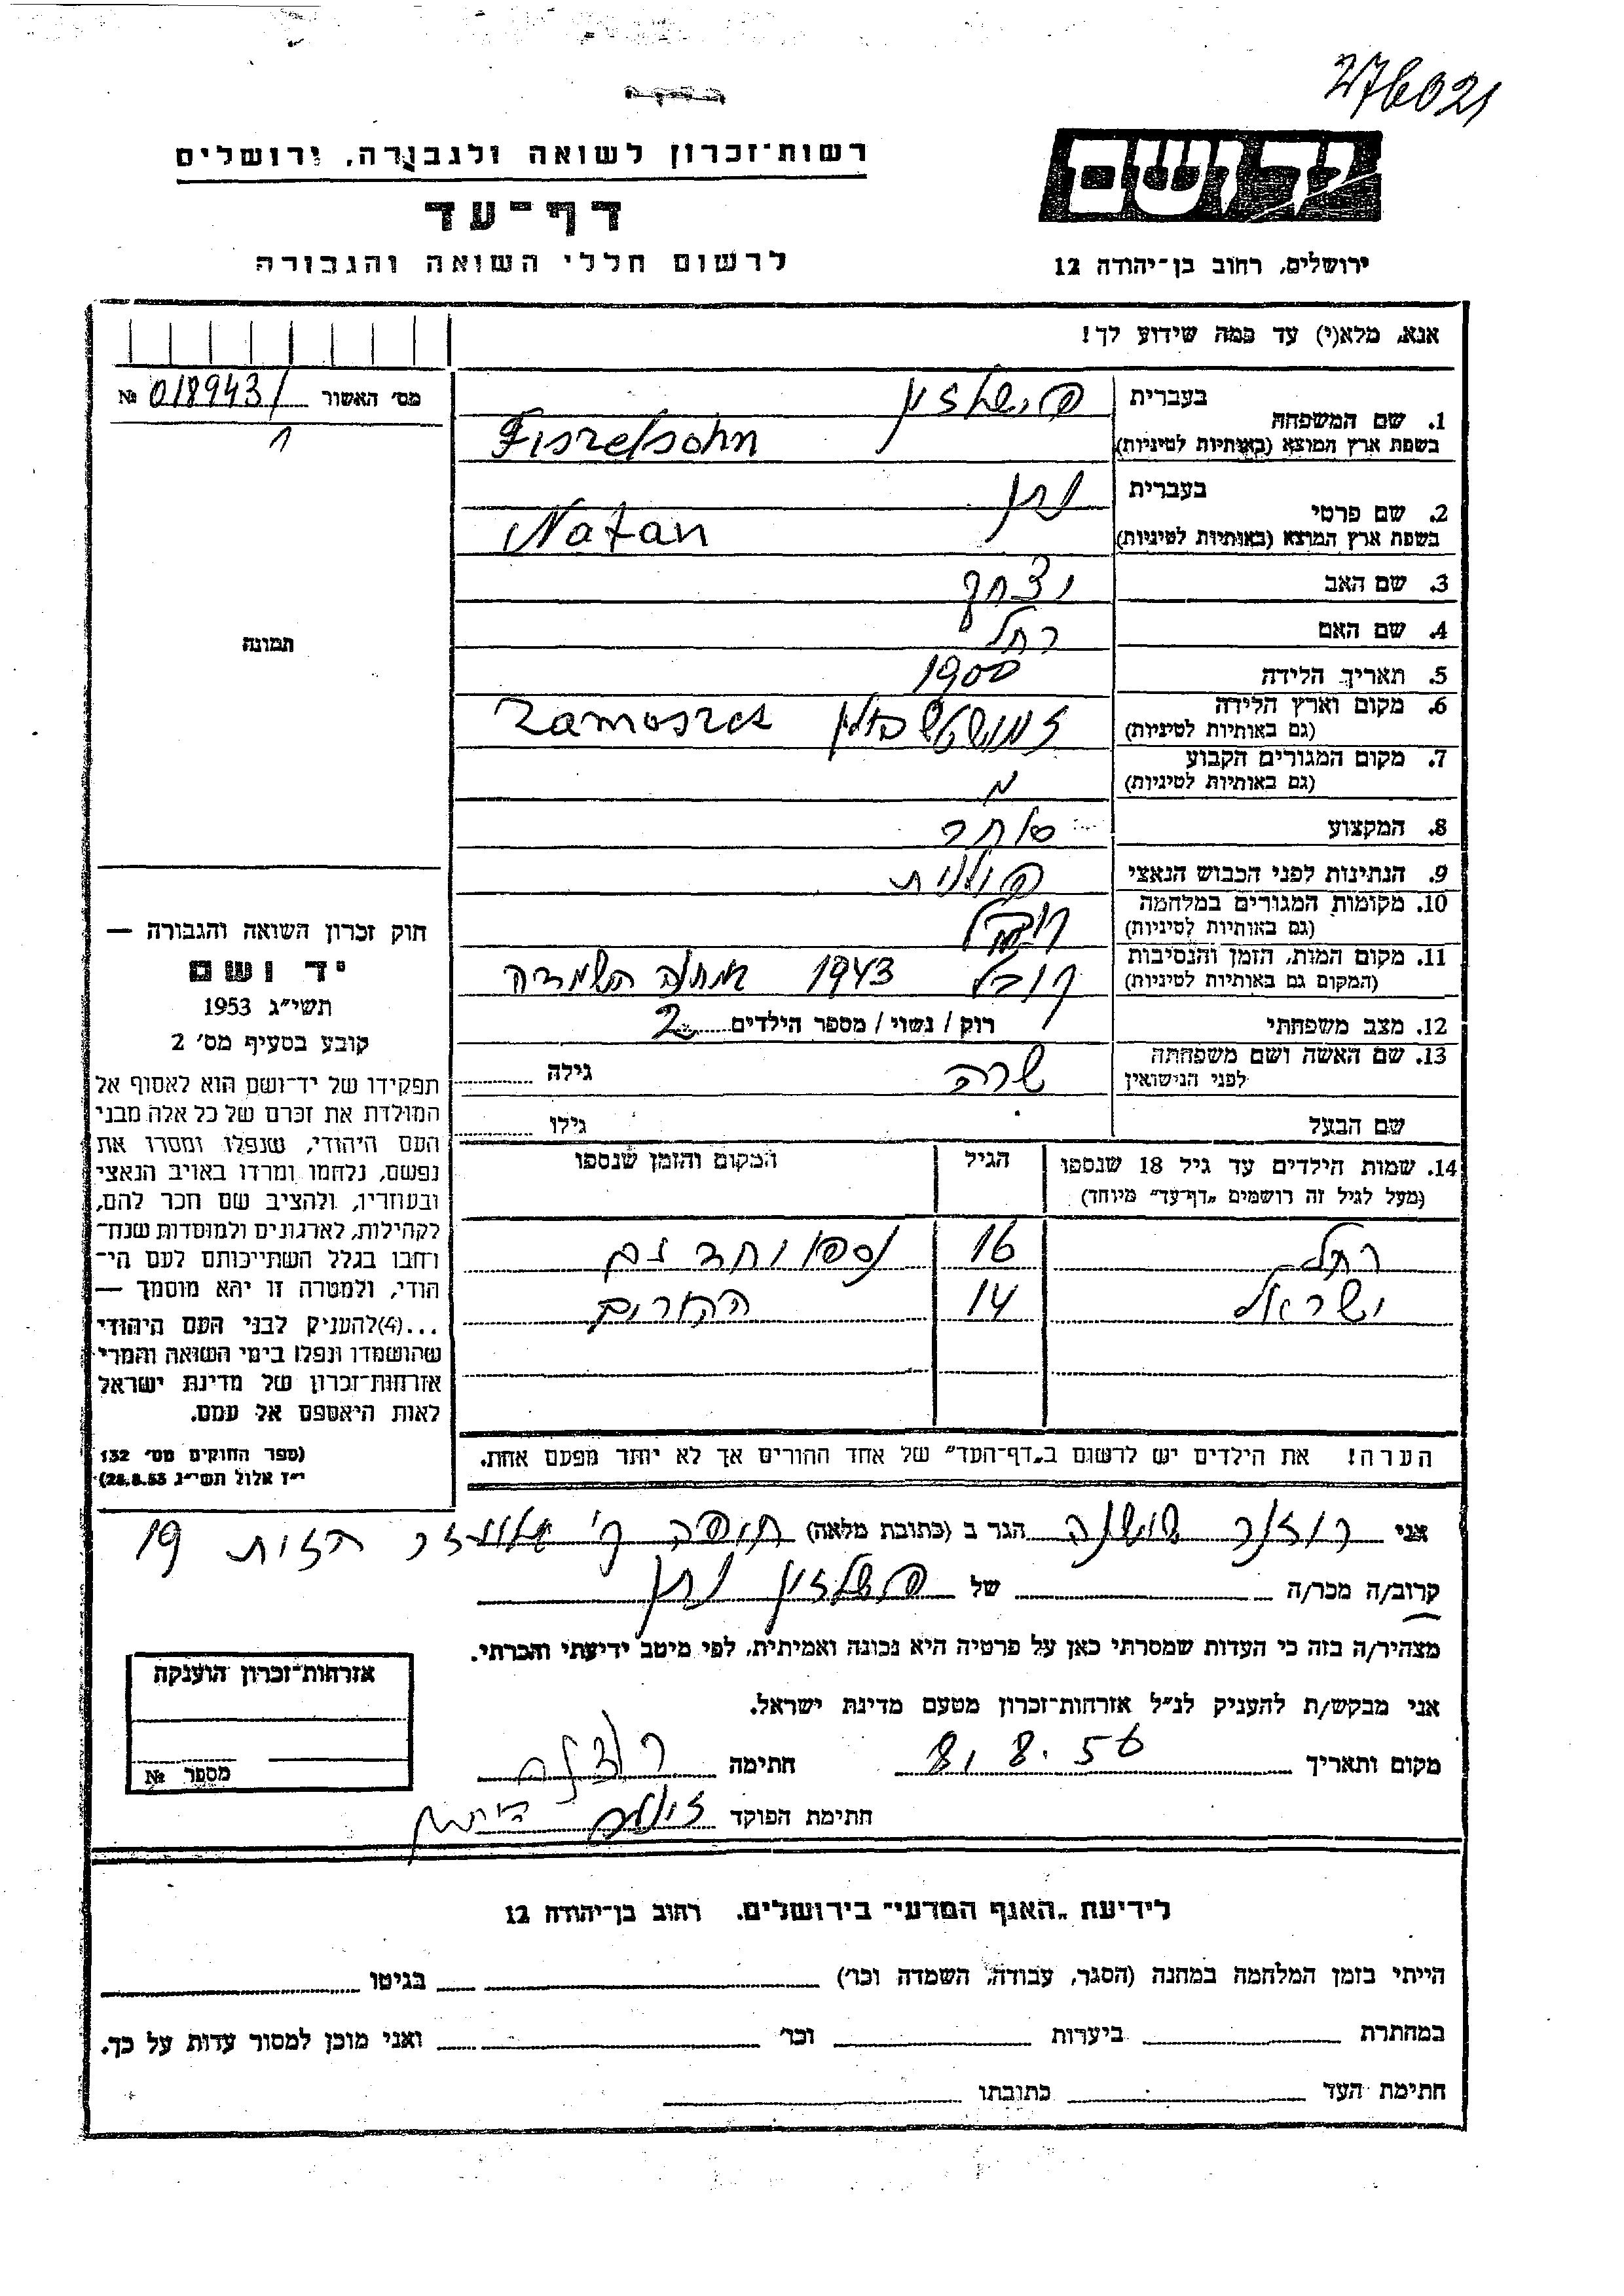 276021
רשות־זכרון לשואה ולגבורה, ירושלים
דף־עד
לרשום חללי השואה והגבורה
יד ושם
ירושלים, רחוב בן־יהודה 12
אנא, מלא(י) עד כמה שידוע לך!
מס׳ האשור 018943/ №
1
1. שם המשפחה
בעברית
בשפת ארץ המוצא (באותיות לטיניות)
Fiszelsohn
2. שם פרטי
בעברית נתן
בשפת ארץ המוצא (באותיות לטיניות)
Natan
3. שם האב יצחק
4. שם האם רחל
5. תאריך הלידה 1900
6. מקום וארץ הלידה
(גם באותיות לטיניות)
פולין
7. מקום המגורים הקבוע
(גם באותיות לטיניות)
8. המקצוע סוחר
9. הנתינות לפני הכבוש הנאצי פולנית
10. מקומות המגורים במלחמה
(גם באותיות לטיניות)
11. מקום המות, הזמן והנסיבות
(המקום גם באותיות לטיניות)
קובל 1943 מחנה השמדה
12. מצב משפחתי רוק / נשוי / מספר הילדים 2
13. שם האשה ושם משפחתה
לפני הנישואין
שרה גילה
שם הבעל גילו
14. שמות הילדים עד גיל 18 שנספו
(מעל לגיל זה רושמים „דף־עד״ מיוחד)
הגיל
המקום והזמן שנספו
רחל 16 נספו יחד עם
ישראל 14 ההורים
תמונה
חוק זכרון השואה והגבורה —
יד ושם
תשי״ג 1953
קובע בסעיף מס׳ 2
תפקידו של יד־ושם הוא לאסוף אל
המולדת את זכרם של כל אלה מבני
העם היהודי, שנפלו ומסרו את
נפשם, נלחמו ומרדו באויב הנאצי
ובעוזריו, ולהציב שם וזכר להם,
לקהילות, לארגונים ולמוסדות שנח־
רבו בגלל השתייכותם לעם הי־
הודי, ולמטרה זו יהא מוסמך —
...(4)להעניק לבני העם היהודי
שהושמדו ונפלו בימי השואה והמרי
אזרחות־זכרון של מדינת ישראל
לאות היאספם אל עמם.
(ספר החוקים מס׳ 132
י״ז אלול תשי״ג 28.8.53)
הערה! את הילדים יש לרשום ב„דף־העד״ של אחד ההורים אך לא יותר מפעם אחת.
אני רוזנר שושנה הגר ב (כתובת מלאה) חיפה ק׳ אליעזר הזית 19
קרוב/ה מכר/ה של פישלזון נתן
מצהיר/ה בזה כי העדות שמסרתי כאן על פרטיה היא נכונה ואמיתית, לפי מיטב ידיעתי והכרתי.
אני מבקש/ת להעניק לנ״ל אזרחות־זכרון מטעם מדינת ישראל.
מקום ותאריך 8.8.56 חתימה
חתימת הפוקד
אזרחות־זכרון הוענקה
מספר №
לידיעת „האגף המדעי״ בירושלים. רחוב בן־יהודה 12
הייתי בזמן המלחמה במחנה (הסגר, עבודה, השמדה וכו׳) בגיטו
במחתרת ביערות וכו׳ ואני מוכן למסור עדות על כך.
חתימת העד כתובתו